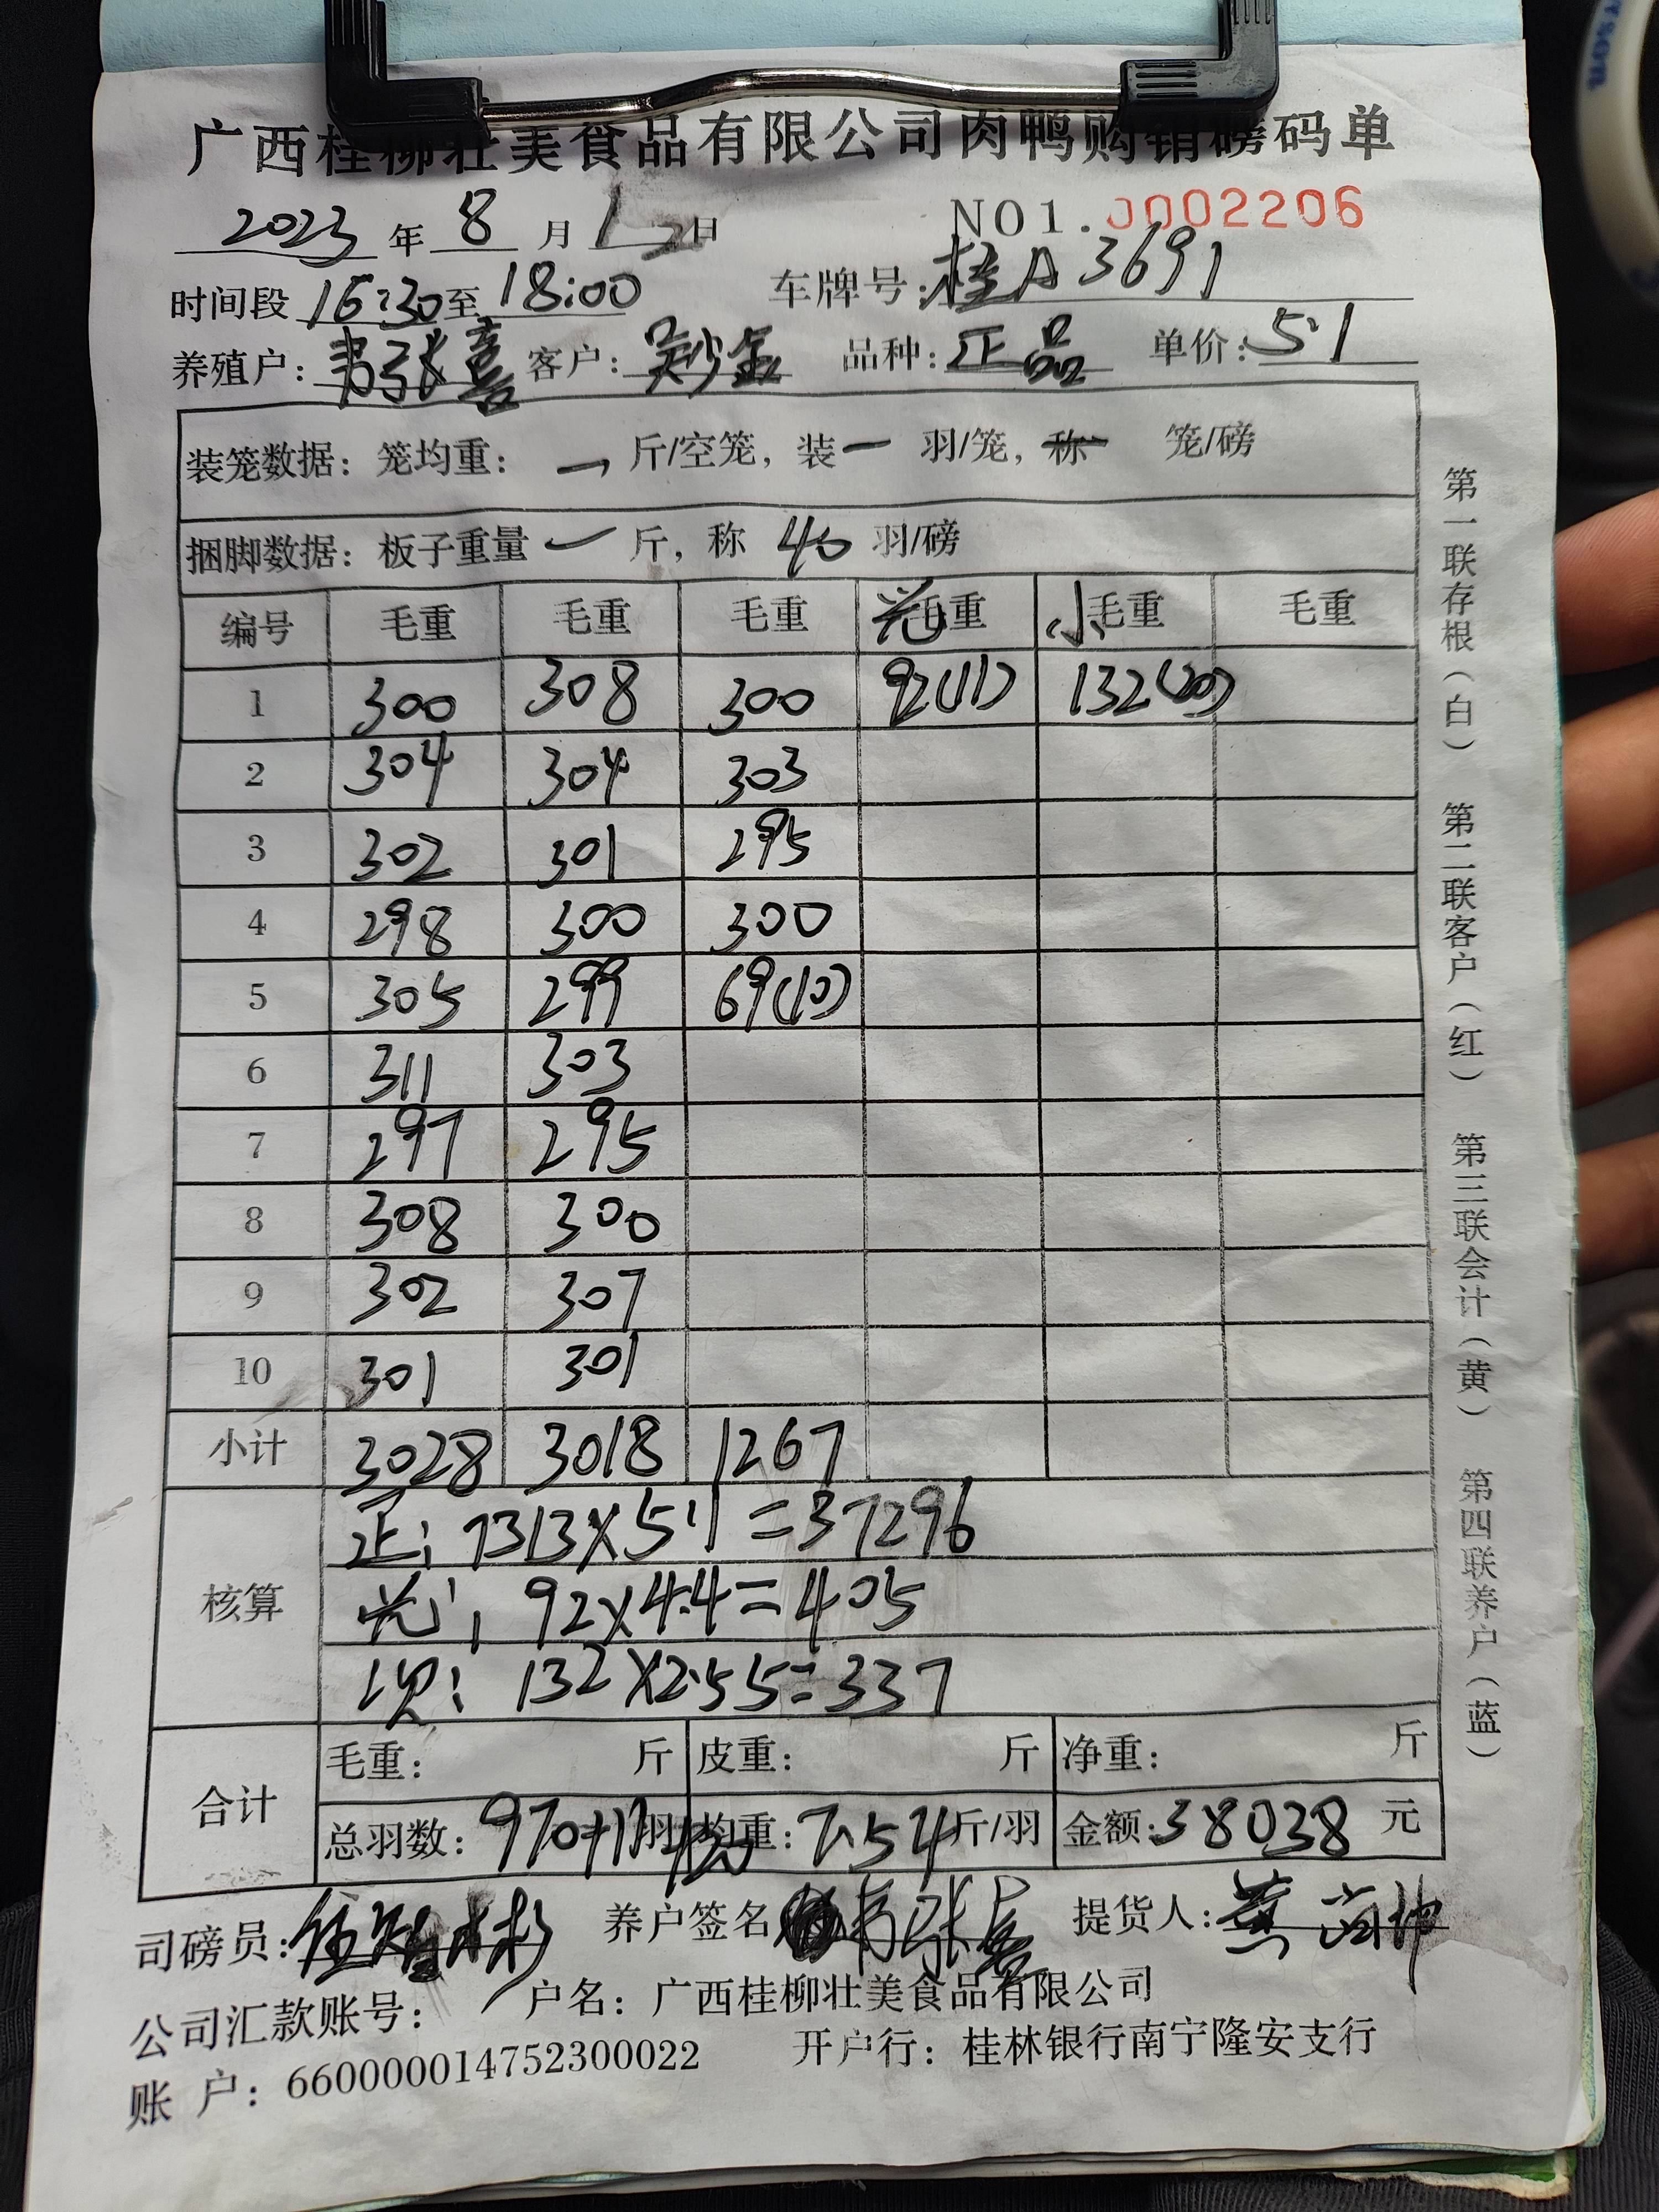 广西桂柳壮美食品有限公司肉鸭购销磅码单
2023 年 8 月 1 日
NO1.0002206
时间段 16:30 至 18:00 车牌号: 桂A 3691
养殖户: 韦张喜 客户: 吴妙金 品种: 正品 单价: 5.1
装笼数据: 笼均重: 一 斤/空笼, 装 一 羽/笼, 称 一 笼/磅
捆脚数据: 板子重量 一 斤, 称 40 羽/磅
编号 毛重 毛重 毛重 光 毛重 小 毛重 毛重
1 300 308 300 92(11) 132(20)
2 304 304 303
3 302 301 295
4 298 300 300
5 305 299 69(10)
6 311 303
7 297 295
8 308 300
9 302 307
10 301 301
小计 3028 3018 1267
核算
正: 7313×5.1=37296
光: 92×4.4=405
次: 132×2.55=337
合计
毛重: 斤 皮重: 斤 净重: 斤
总羽数: 970+11 羽 均重: 7.54 斤/羽 金额: 38038 元
司磅员: 养户签名 韦张喜 提货人: 黄
公司汇款账号: 户名: 广西桂柳壮美食品有限公司
账 户: 660000014752300022 开户行: 桂林银行南宁隆安支行
第一联存根(白) 第二联客户(红) 第三联会计(黄) 第四联养户(蓝)